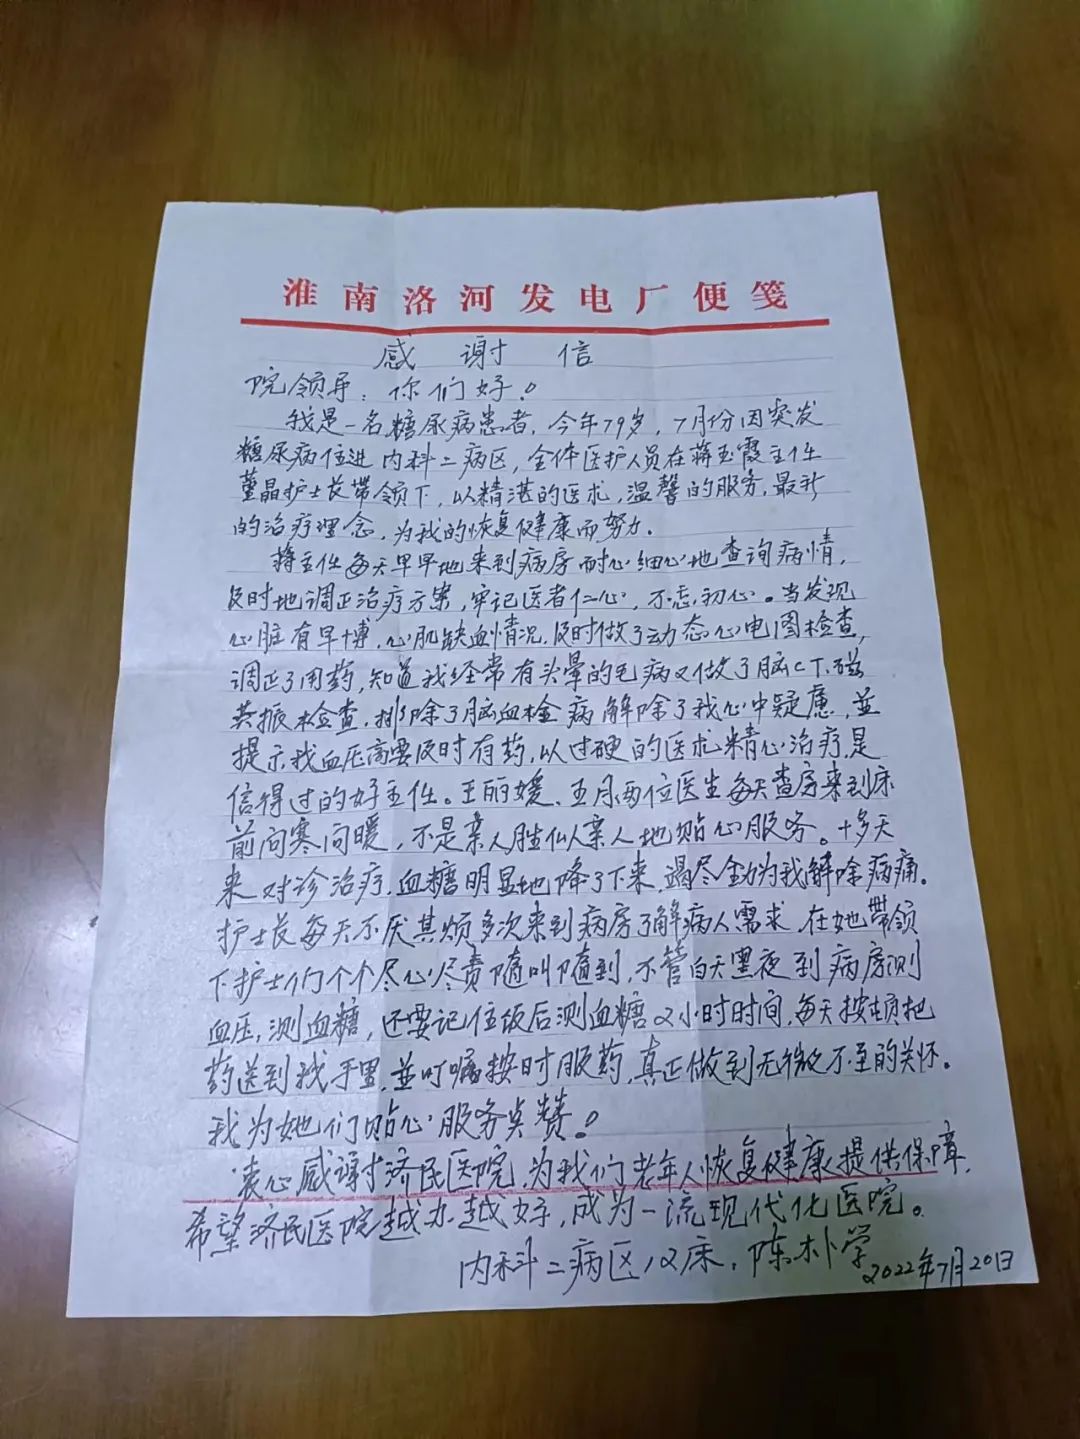 淮南洛河发电厂便笺
感谢信
院领导：你们好！
我是一名糖尿病患者，今年79岁，7月份因突发
糖尿病住进内科二病区，全体医护人员在蒋玉霞主任
董晶护士长带领下，以精湛的医术，温馨的服务，最新
的治疗理念，为我的恢复健康而努力。
蒋主任每天早早地来到病房耐心细心地查询病情，
及时地调正治疗方案，牢记医者仁心，不忘初心。当发现
心脏有早博，心肌缺血情况，及时做了动态心电图检查，
调正了用药，知道我经常有头晕的毛病又做了脑CT.磁
共振检查，排除了脑血栓病解除了我心中疑虑，並
提示我血压高要及时有药，以过硬的医术精心治疗，是
信得过的好主任。王丽媛、王月两位医生每天查房来到床
前问寒问暖，不是亲人胜似亲人地贴心服务。十多天
来对诊治疗，血糖明显地降了下来，竭尽全力为我解除病痛。
护士长每天不厌其烦多次来到病房了解病人需求，在她带领
下护士们个个尽心尽责随叫随到，不管白天黑夜到病房测
血压，测血糖，还要记住饭后测血糖2小时时间，每天按顿把
药送到我手里，並叮嘱按时服药，真正做到无微不至的关怀。
我为她们贴心服务点赞！
衷心感谢济民医院，为我们老年人恢复健康提供保障，
希望济民医院越办越好，成为一流现代化医院。
内科二病区12床，陈朴学
2022年7月20日